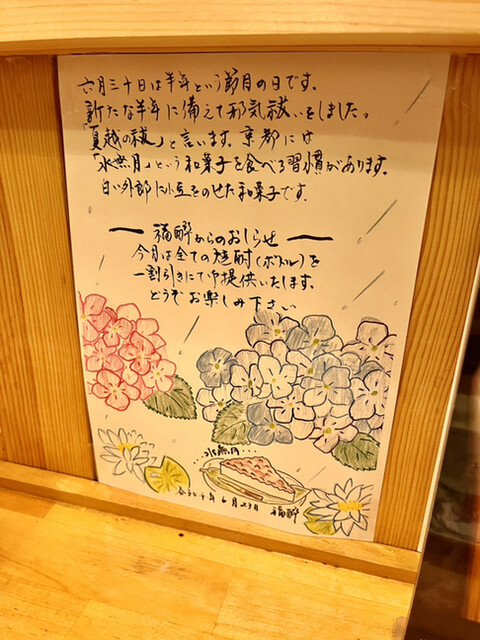 六月三十日は半年という節目の日です。
新たな半年に備えて邪気祓いをしました。
「夏越の祓」と言います。京都には
「水無月」という和菓子を食べる習慣があります。
白い外郎に小豆をのせた和菓子です。
福酔からのおしらせ
今月は全ての焼酎(ボトル)を
一割引きにて御提供いたします。
どうぞお楽しみ下さい
水無月
6月23日 福酔